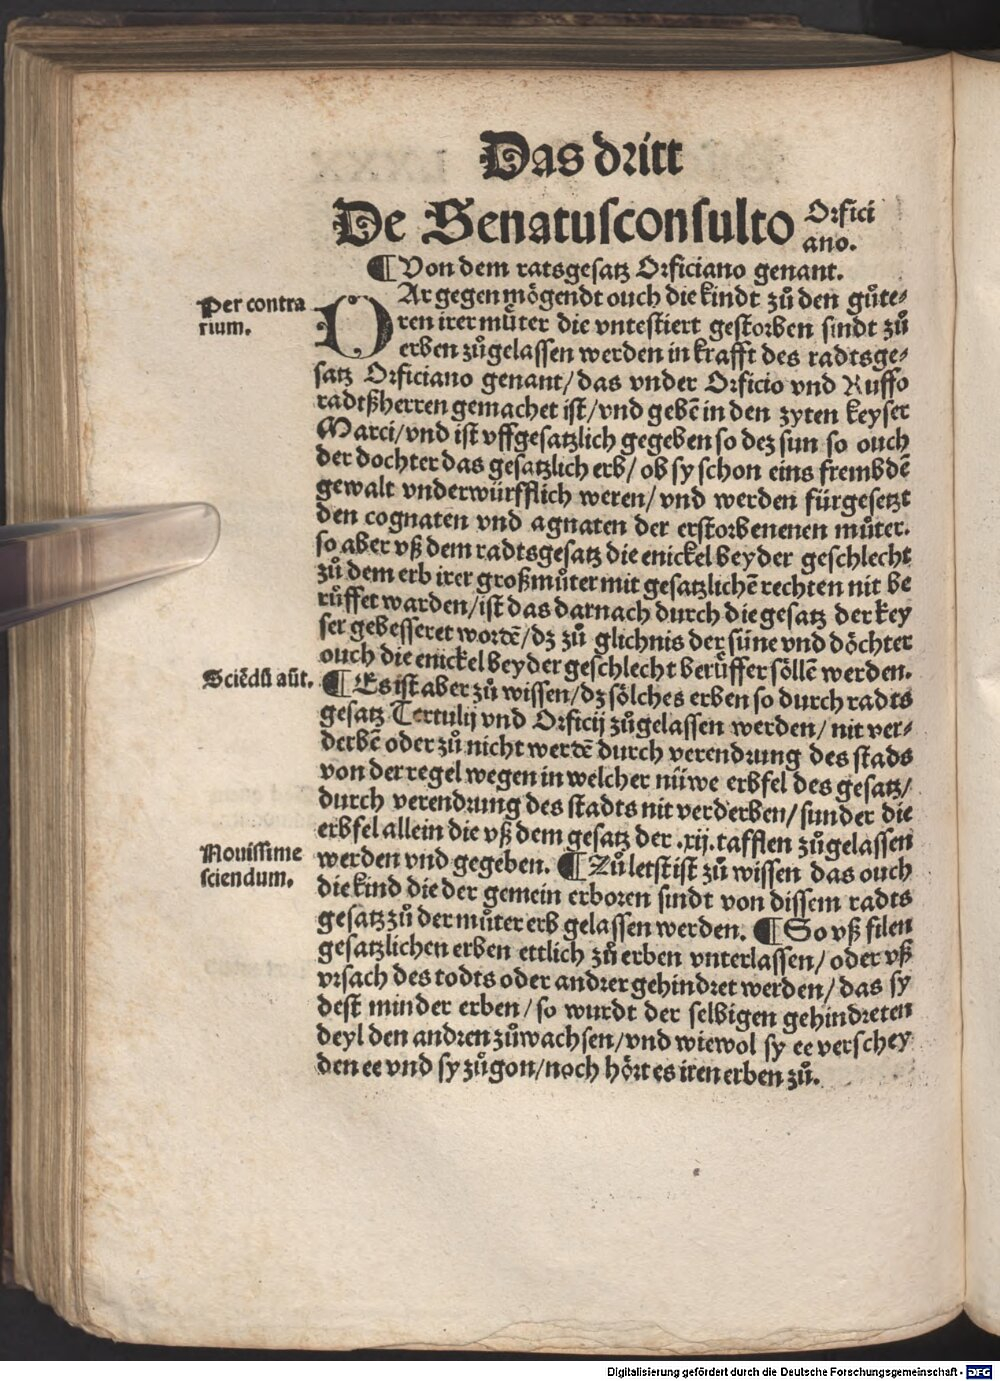 Das dritt
De Senatusconsulto Orfici
ano.
¶ Von dem ratsgesatz Orficiano genant.
Per contra
rium.
DAr gegen mögendt ouch die kindt zů den gůte⸗
ren irer můter die vntestiert gestorben sindt zů
erben zůgelassen werden in krafft des radtsge⸗
satz Orficiano genant/das vnder Orficio vnd Ruffo
radtßherren gemachet ist/vnd gebē in den zyten keyser
Marci/vnd ist vffgesatzlich gegeben so dez sun so ouch
der dochter das gesatzlich erb/ob sy schon eins frembdē
gewalt vnderwürfflich weren/vnd werden fürgesetzt
den cognaten vnd agnaten der erstorbenenen můter.
so aber vß dem radtsgesatz die enickel beyder geschlecht
zů dem erb irer großmůter mit gesatzlichē rechten nit be
růffet warden/ist das darnach durch die gesatz der key
ser gebesseret wordē/dz zů glichnis der süne vnd döchter
ouch die enickel beyder geschlecht berůffer söllē werden.
Sciēdū aūt.
¶ Es ist aber zů wissen/dz sölches erben so durch radts
gesatz Tertulij vnd Orficij zůgelassen werden/nit ver⸗
derbē oder zů nicht werdē durch verendrung des stads
von der regel wegen in welcher nüwe erbfel des gesatz/
durch verendrung des stadts nit verderben/sunder die
erbfel allein die vß dem gesatz der .xij. tafflen zůgelassen
Nouissime
sciendum.
werden vnd gegeben. ¶ Zů letst ist zů wissen das ouch
die kind die der gemein erboren sindt von dissem radts
gesatz zů der můter erb gelassen werden. ¶ So vß filen
gesatzlichen erben ettlich zů erben vnterlassen/oder vß
vrsach des todts oder andrer gehindret werden/das sy
dest minder erben/so wurdt der selbigen gehindreten
deyl den andren zůwachsen/vnd wiewol sy ee verschey
den ee vnd sy zůgon/noch hört es iren erben zů.
Digitalisierung gefördert durch die Deutsche Forschungsgemeinschaft - DFG